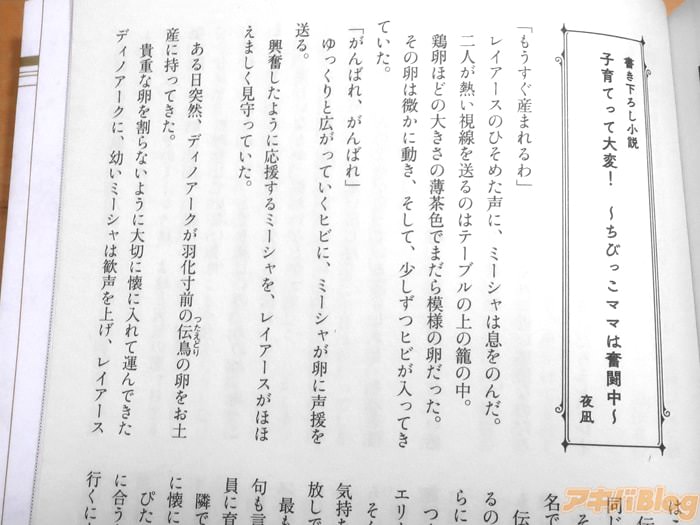 書き下ろし小説
子育てって大変! 〜ちびっこママは奮闘中〜
夜凪
「もうすぐ産まれるわ」
レイアースのひそめた声に、ミーシャは息をのんだ。
二人が熱い視線を送るのはテーブルの上の籠の中。
鶏卵ほどの大きさの薄茶色でまだら模様の卵だった。
その卵は微かに動き、そして、少しずつヒビが入ってき
ていた。
「がんばれ、がんばれ」
ゆっくりと広がっていくヒビに、ミーシャが卵に声援を
送る。
興奮したように応援するミーシャを、レイアースがほほ
えましく見守っていた。
ある日突然、ディノアークが羽化寸前の伝鳥の卵をお土
つたえどり
産に持ってきた。
貴重な卵を割らないように大切に懐に入れて運んできた
ディノアークに、幼いミーシャは歓声を上げ、レイアース
は
伝
同じ
そ
名で
伝
らに
るの
つ
エリ
そん
気持ち
放しで
最も
句も言
員に育
隣で
に懐に
ぴた
に合う
行くに
アキバBlog